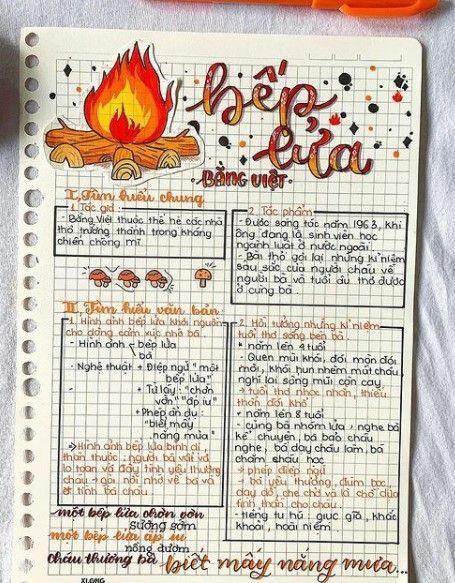 bếp
lửa
-BẰNG VIỆT-
I, Tìm hiểu chung
1. Tác giả
- Bằng Việt thuộc thế hệ các nhà
thơ trưởng thành trong kháng
chiến chống mĩ
2. Tác phẩm
- Được sáng tác năm 1963, khi
ông đang là sinh viên học
ngành luật ở nước ngoài.
- Bài thơ gợi lại những kỉ niệm
sâu sắc của người cháu về
người bà và tuổi ấu thơ được
ở cùng bà.
II, Tìm hiểu văn bản
1. Hình ảnh bếp lửa khơi nguồn
cho dòng cảm xúc nhớ bà.
- Hình ảnh bếp lửa
bà
- Nghệ thuật + Điệp ngữ "một
bếp lửa"
+ Từ láy: "chờn
vờn" "ấp iu"
+ Phép ẩn dụ:
"biết mấy
nắng mưa"
→ Hình ảnh bếp lửa bình dị,
thân thuộc; người bà vất vả
lo toan và đầy tình yêu thương
cháu → gợi nỗi nhớ về bà và
tình bà cháu.
2. Hồi tưởng những kỉ niệm
tuổi thơ sống bên bà.
* năm lên 4 tuổi
- Quen mùi khói, đói mòn đói
mỏi, khói hun nhèm mắt cháu,
nghĩ lại sống mũi còn cay.
→ tuổi thơ nhọc nhằn, thiếu
thốn đói khổ
+ năm lên 8 tuổi
- cùng bà nhóm lửa, nghe bà
kể chuyện, bà bảo cháu
nghe, bà dạy cháu làm, bà
chăm cháu học
→ phép điệp ngữ
→ bà yêu thương, đùm bọc,
dạy dỗ, che chở và là chỗ dựa
tinh thần cho cháu.
- tiếng tu hú: giục giã, khắc
khoải, hoài niệm.
một bếp lửa chờn vờn
sương sớm
một bếp lửa ấp iu
nồng đượm
cháu thương bà biết mấy nắng mưa...